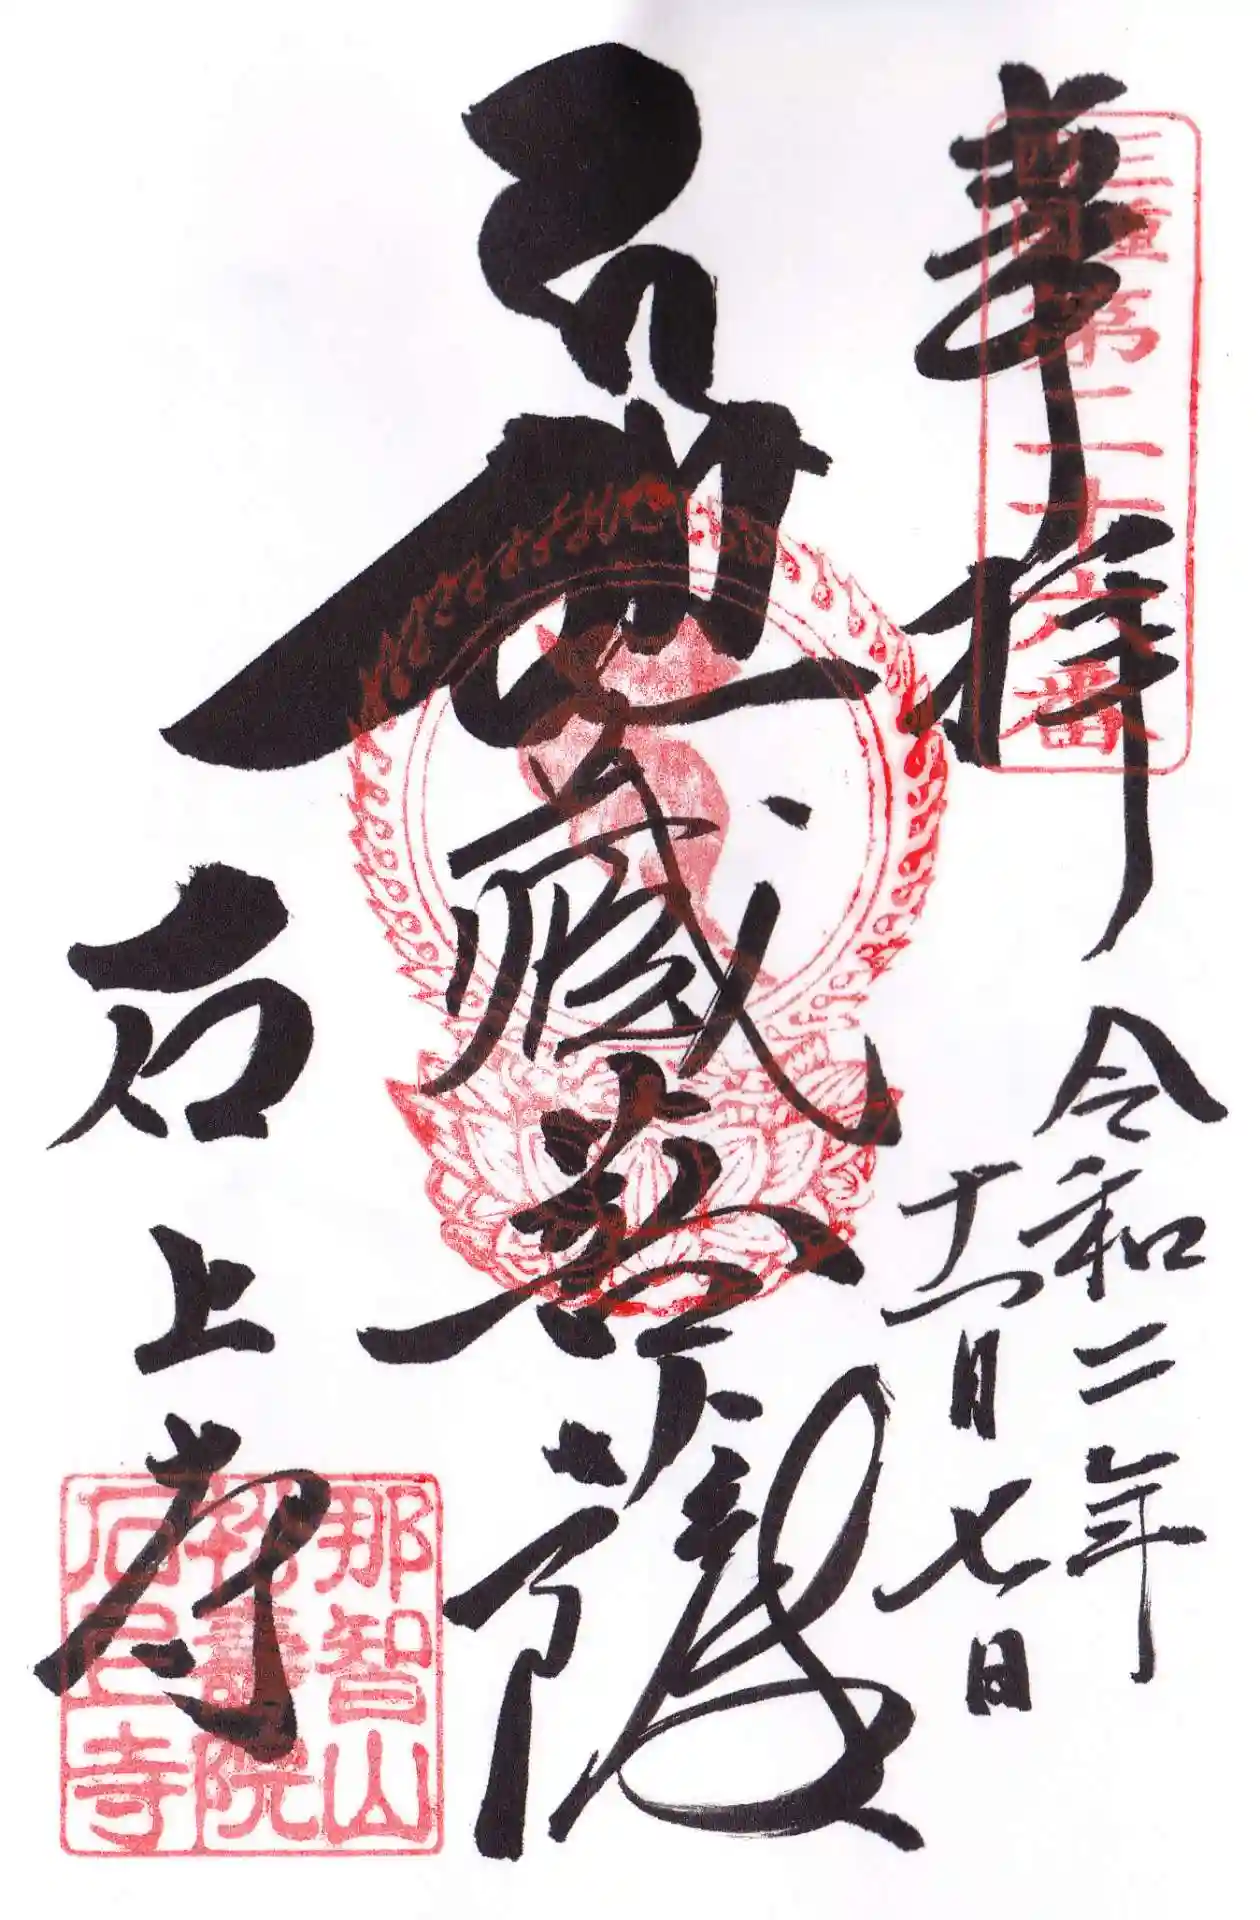 奉拝
三重
四国
第二十六番
令和二年
十二月七日
蔵菩薩
石上寺
那智山
壽院
石上寺